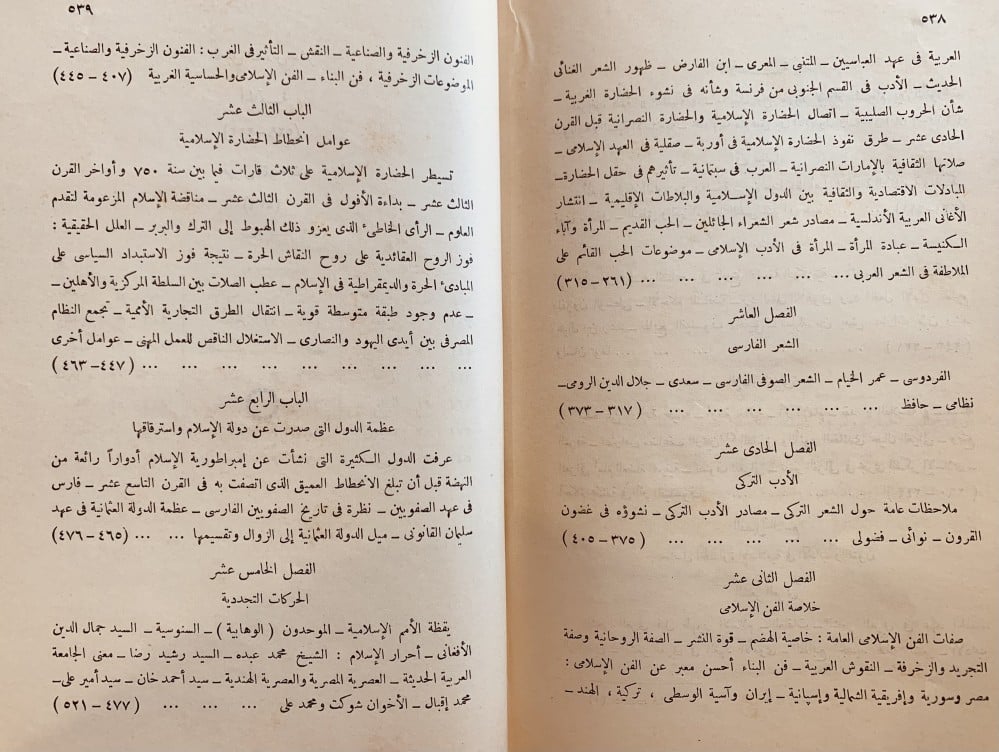 ٥٣٨
العربية فى عهد العباسيين ــ المتنبى ــ المعرى ــ ابن الفارض ــ ظهور الشعر الغنائى
الحديث ــ الأدب فى القسم الجنوبى من فرنسة وشأنه فى نشوء الحضارة الغربية ــ
شأن الحروب الصليبية ــ اتصال الحضارة الإسلامية والحضارة النصرانية قبل القرن
الحادى عشر ــ طرق نفوذ الحضارة الإسلامية فى أوربة ــ صقلية فى العهد الإسلامى ــ
صلاتها الثقافية بالإمارات النصرانية ــ العرب فى سبتمانية ــ تأثيرهم فى حقل الحضارة ــ
المبادلات الاقتصادية والثقافية بين الدول الإسلامية والبلاطات الإقليمية ــ انتشار
الأغانى العربية الأندلسية ــ مصادر شعر الشعراء الجائلين ــ الحب القديم ــ المرأة وآباء
الكنيسة ــ عبادة المرأة ــ المرأة فى الأدب الإسلامى ــ موضوعات الحب القائم على
الملاطفة فى الشعر العربى ... ... ... ... ... ... (٢٦١ – ٣١٥)
الفصل العاشر
الشعر الفارسى
الفردوسى ــ عمر الخيام ــ الشعر الصوفى الفارسى ــ سعدى ــ جلال الدين الرومى ــ
نظامى ــ حافظ ... ... ... ... ... ... (٣١٧ – ٣٧٣)
الفصل الحادى عشر
الأدب التركى
ملاحظات عامة حول الشعر التركى ــ مصادر الأدب التركى ــ نشوؤه فى غضون
القرون ــ نوائى ــ فضولى ... ... ... ... ... (٣٧٥ – ٤٠٥)
الفصل الثانى عشر
خلاصة الفن الإسلامى
صفات الفن الإسلامى العامة : خاصية الهضم ــ قوة النشر ــ الصفة الروحانية وصفة
التجريد والزخرفة ــ النقوش العربية ــ فن البناء أحسن معبر عن الفن الإسلامى :
مصر وسورية وإفريقية الشمالية وإسپانية ــ إيران وآسية الوسطى ، تركية ، الهند ــ
٥٣٩
الفنون الزخرفية والصناعية ــ النقش ــ التأثير فى الغرب : الفنون الزخرفية والصناعية ــ
الموضوعات الزخرفية ، فن البناء ــ الفن الإسلامى والحساسية الغربية (٤٠٧ – ٤٤٥)
الباب الثالث عشر
عوامل انحطاط الحضارة الإسلامية
تسيطر الحضارة الإسلامية على ثلاث قارات فيما بين سنة ٧٥٠ وأواخر القرن
الثالث عشر ــ بداءة الأفول فى القرن الثالث عشر ــ مناقضة الإسلام المزعومة لتقدم
العلوم ــ الرأى الخاطئ الذى يعزو ذلك الهبوط إلى الترك والبربر ــ العلل الحقيقية :
فوز الروح العقائدية على روح النقاش الحرة ــ نتيجة فوز الاستبداد السياسى على
المبادئ الحرة والديمقراطية فى الإسلام ــ عطب الصلات بين السلطة المركزية والأهلين ــ
ــ عدم وجود طبقة متوسطة قوية ــ انتقال الطرق التجارية الأممية ــ تجمع النظام
المصرفى بين أيدى اليهود والنصارى ــ الاستغلال الناقص للعمل المهنى ــ عوامل أخرى
... ... ... ... ... ... ... ... (٤٤٧ – ٤٦٣)
الباب الرابع عشر
عظمة الدول التى صدرت عن دولة الإسلام واسترقاقها
عرفت الدول الكثيرة التى نشأت عن إمبراطورية الإسلام أدواراً رائعة من
النهضة قبل أن تبلغ الانحطاط العميق الذى اتصفت به فى القرن التاسع عشر ــ فارس
فى عهد الصفويين ــ نظرة فى تاريخ الصفويين الفارسى ــ عظمة الدولة العثمانية فى عهد
سليمان القانونى ــ ميل الدولة العثمانية إلى الزوال وتقسيمها ... ... (٤٦٥ – ٤٧٦)
الفصل الخامس عشر
الحركات التجددية
يقظة الأمم الإسلامية ــ الموحدون (الوهابية) ــ السنوسية ــ السيد جمال الدين
الأفغانى ــ أحرار الإسلام : الشيخ محمد عبده ــ السيد رشيد رضا ــ معنى الجامعة
العربية الحديثة ــ العصرية المصرية والعصرية الهندية ــ سيد أحمد خان ــ سيد أمير على ــ
محمد إقبال ــ الأخوان شوكت ومحمد على ... ... ... (٤٧٧ – ٥٢١)